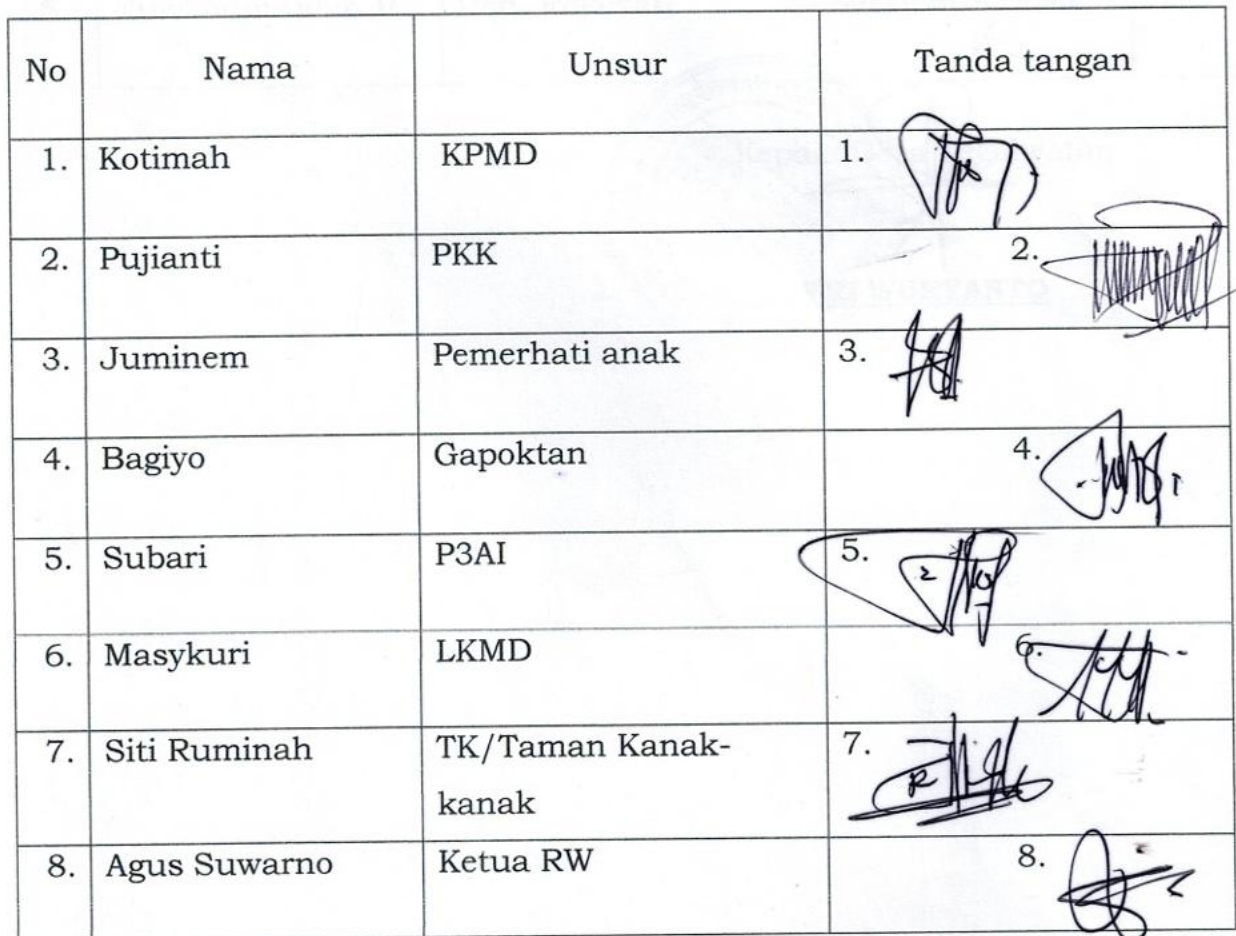 No Nama Unsur Tanda tangan
1. Kotimah KPMD 1.
2. Pujianti PKK 2.
3. Juminem Pemerhati anak 3.
4. Bagiyo Gapoktan 4.
5. Subari P3AI 5.
6. Masykuri LKMD 6.
7. Siti Ruminah TK/Taman Kanak- 7.
kanak
8. Agus Suwarno Ketua RW 8.